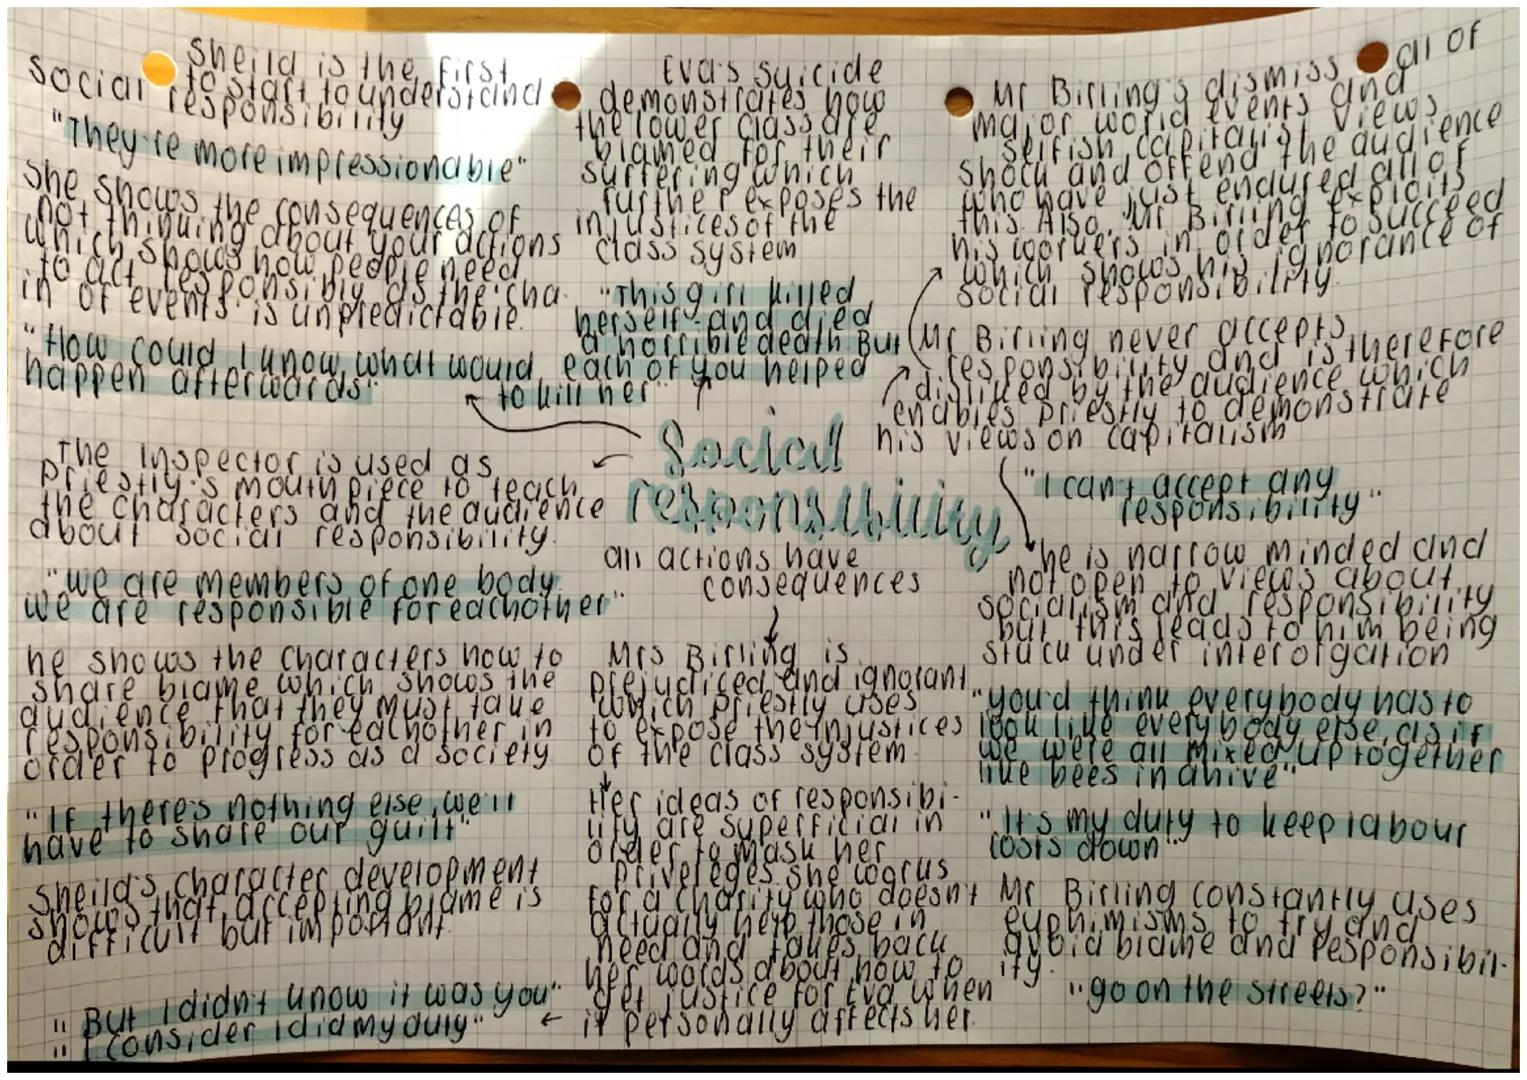 Sheild is the first
to start to understand
social responsibility
"They're more impressionable"
she shows the consequences of
not thinking about your actions
which shows how people need
to act responsibly as the cha
in of events is unpredictable.
"How could I know what would
happen afterwards"
The Inspector is used as
Priestly's mouthpiece to teach
the characters and the audience
about social responsibility.
"we are members of one body,
we are responsible for eachother"
he shows the characters how to
share blame which shows the
audience that they must take
responsibility for eachother in
order to progress as a society
"If there's nothing else, we'll
have to share our guilt"
Sheild's character development
shows that accepting blame is
difficult but important.
"But I didn't know it was you"
"I consider I did my duty"
Eva's suicide
demonstrates how
the lower class are
blamed for their
suffering which
further exposes the
injustices of the
class system
"This girl killed
herself-and died
a horrible death But
each of you helped
to kill her"
Social
responsibility
all actions have
consequences
Mrs Birling is
prejudiced and ignorant
which Priestly uses
to expose the injustices
of the class system.
Her ideas of responsibi-
lity are superficial in
order to mask her
priveleges she works
for a charity who doesn't
actually help those in
need and takes back
her words about how to
get justice for Eva when
it personally affects her.
Mr Birling's dismiss all of
major world events and
selfish capitalist views
shock and offend the audience
who have just endured all of
this. Also, Mr Birling exploits
his workers in order to succeed
which shows his ignorance of
social responsibility.
Mr Birling never accepts
responsibility and is therefore
disliked by the audience which
enables Priestly to demonstrate
his views on capitalism
"I can't accept any
responsibility".
he is narrow minded and
not open to views about
socialism and responsibility
but this leads to him being
stuck under interorgation
"you'd think everybody has to
look like everybody else, as if
we were all mixed up together
like bees in a hive"
"It's my duty to keep labour
costs down"
Mr Birling constantly uses
euphimisms to try and
avoid blame and responsibil-
ity.
"go on the streets?"